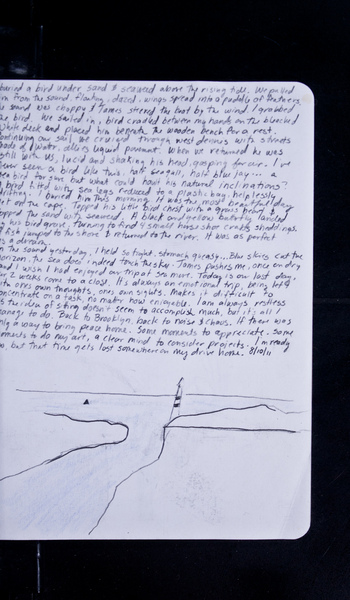 buried a bird under sand & seaweed above the rising tide. We pulled
him from the sound, floating, dazed, wings spread into a puddle of feathers.
The sound was choppy & James steered the boat by the wind. I grabbed
the bird. We sailed in, bird cradled between my hands on the bleached
white deck and placed him beneath the wooden bench for a rest.
continuing our sail we cruised through west dennis with streets
made of water, alleys liquid pavement. When we returned he was
still with us, lucid and shaking his head, gasping for air. I've
never seen a bird like this. half seagull, half blue jay... a
sea bird for sure but what could halt his natural inclinations?
A bird tilted with sea legs reduced to a plastic bag helplessly
drifting. I buried him this morning. It was the most beautiful day
yet on the Cape. Topped his little bird chest with a grass heart &
topped the sand with seaweed. A black and yellow butterfly landed
on his bird grave. Turning to find 4 small horse shoe crabs shuddling.
A fish jumped to the shore & returned to the river. It was as perfect
as a dream.
On the sound yesterday, I held so tight, stomach queasy... Blue skies cut the
horizon, the sea does indeed touch the sky. James pushes me, once on dry
land I wish I had enjoyed our trip at sea more. Today is our last day,
our 2 weeks come to a close. It's always an emotional trip, being left
with ones own thoughts, ones own sights. Makes it difficult to
concentrate on a task, no mater how enjoyable. I am always restless
& the idea of sitting doesn't seem to accomplish much, but it's all I
manage to do. Back to Brooklyn, back to noise & chaos. If there was
only a way to bring peace home. Some moments to appreciate. Some
moments to do my art, a clear mind to consider projects. I'm ready
but that time gets lost somewhere on my drive home. 8/10/11